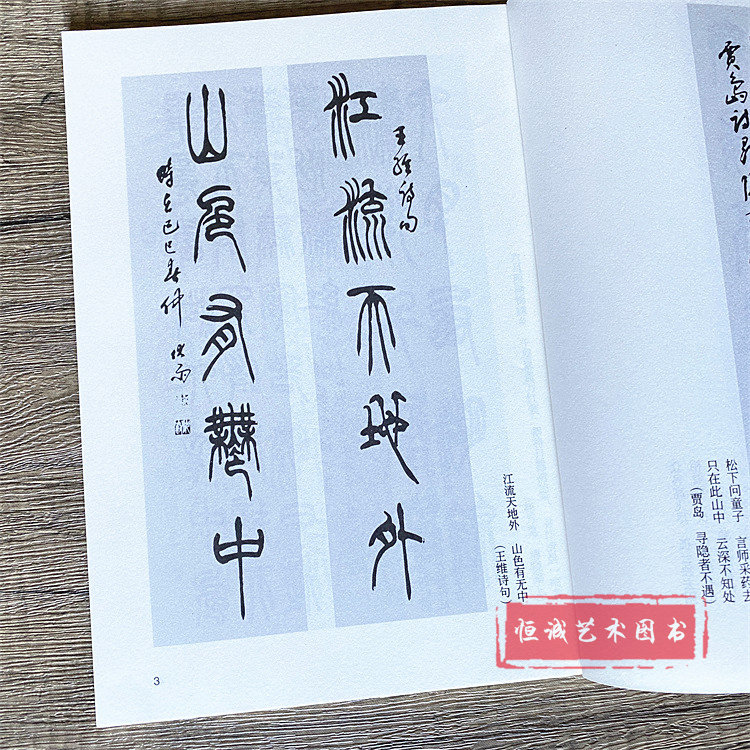 江流天地外
王維詩句
山色有無中
時在己巳春仲
江流天地外　山色有无中
（王维诗句）
3
賈島詩尋
松下问童子　言师采药去
只在此山中　云深不知处
（贾岛　寻隐者不遇）
恒诚艺术图书